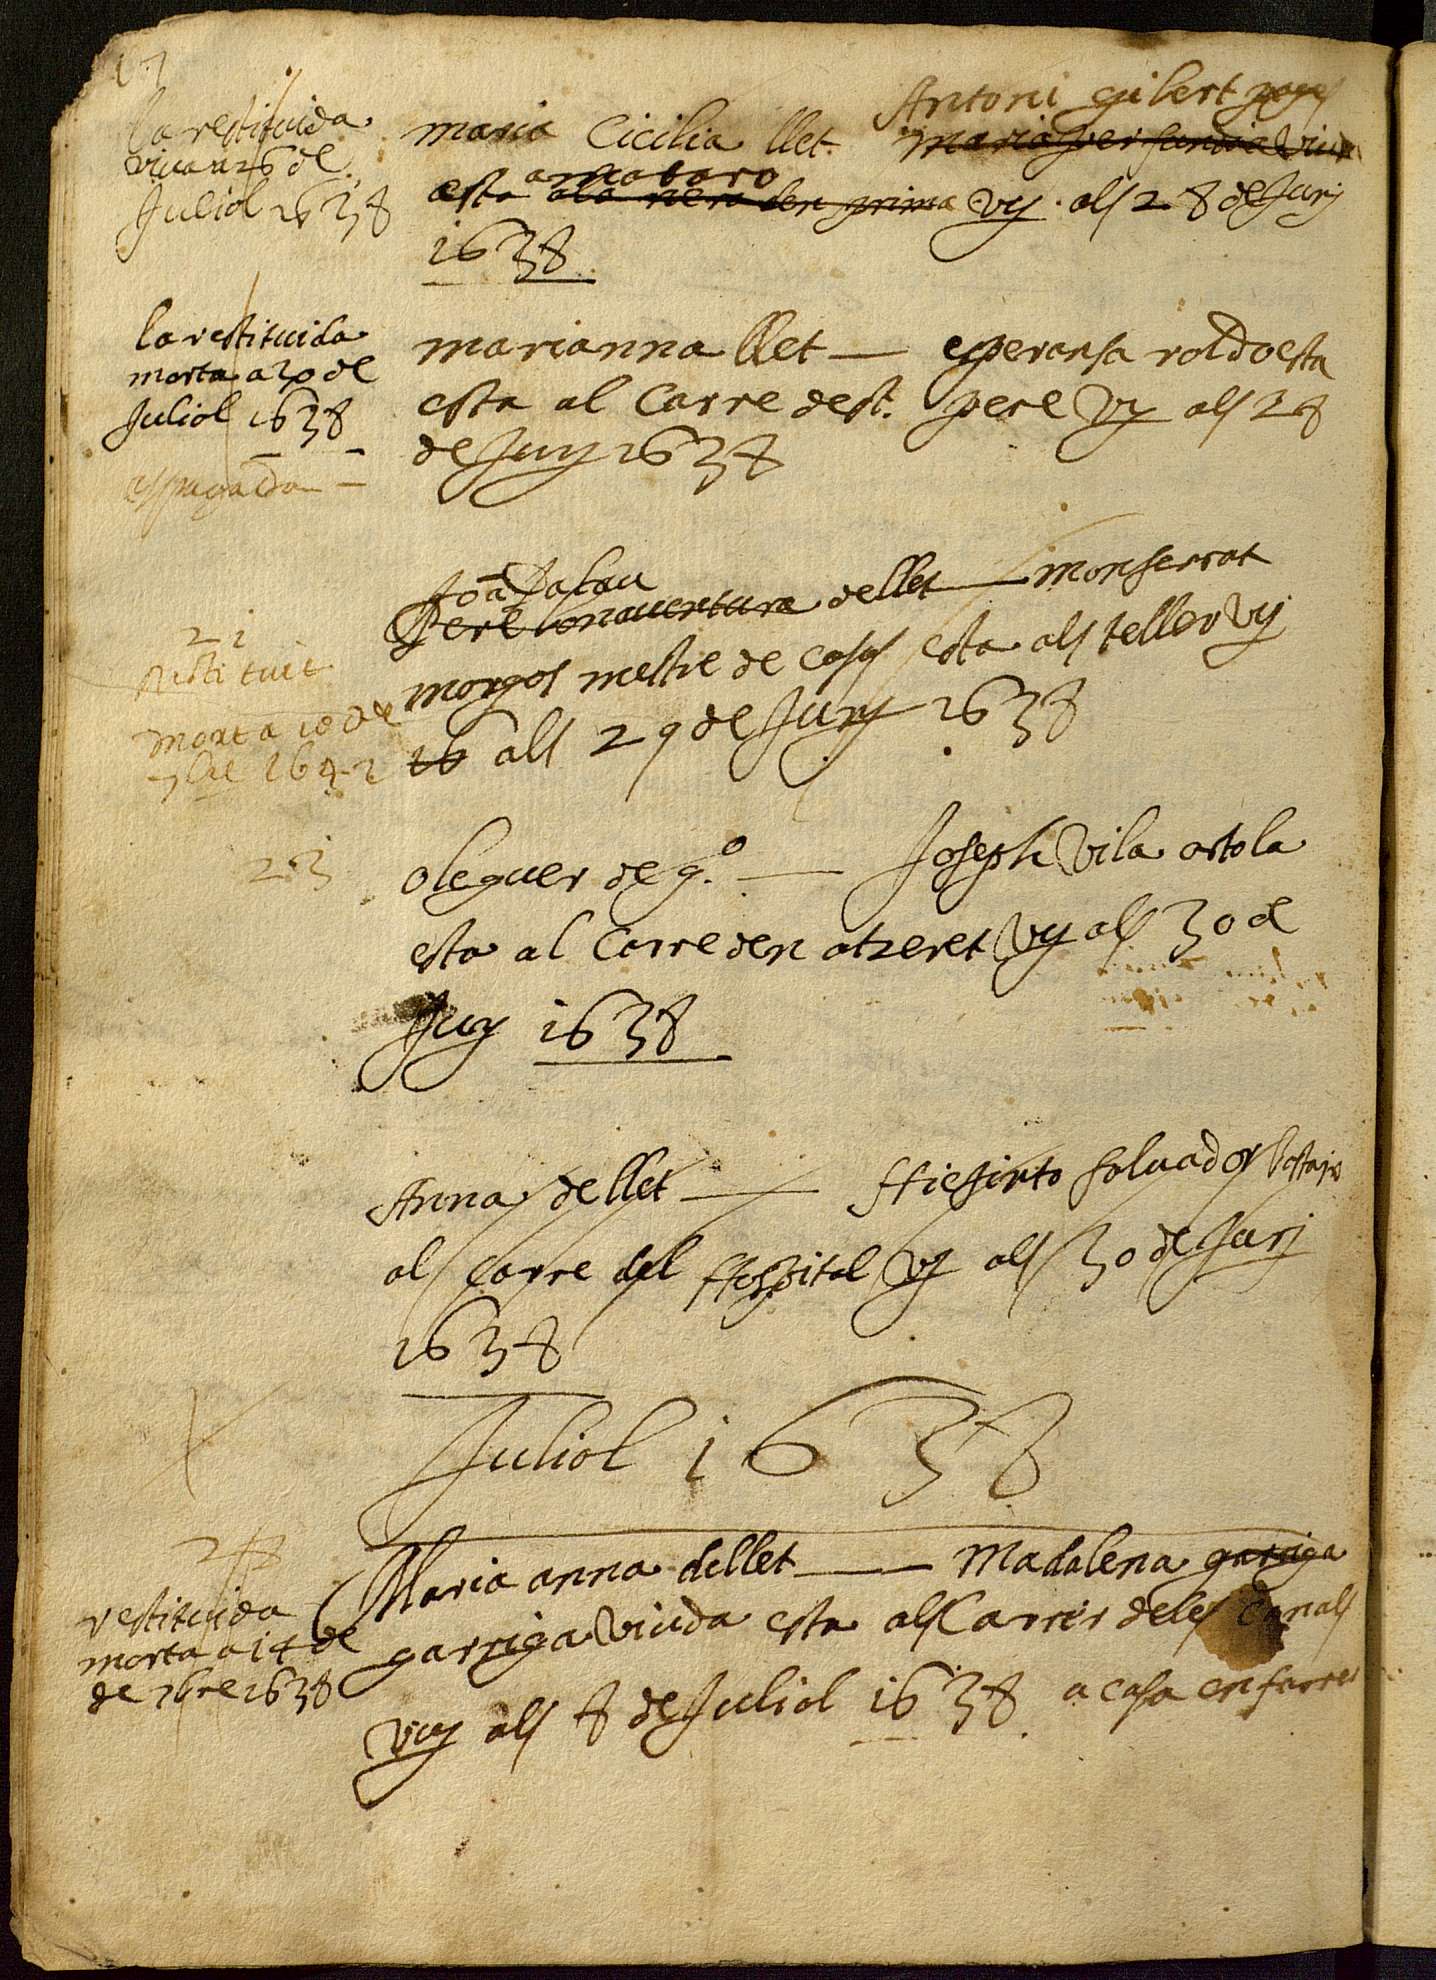 17
la restituida
viva a 26 de
Juliol 1638
Antoni gibert pages
maria Cicilia llet.
amataro
esta als 28 de Juny
1638
la restituida
morta a 20 de
Juliol 1638
es pagada
marianna llet — esperansa roldo esta
esta al Carre de st. pere vy als 28
de Juny 1638
21
restituit
mort a 10 de
1642
Joā Palau
Pere bonauentura de llet — monserrat
morgos mestre de cases esta als teller vy
16 als 29 de Juny 1638
23
oleguer de g.º — Joseph Vila ortola
esta al Carre den atzeret vy als 30 de
Juy 1638
Anna de llet — Hiesinto saluador bastaix
al Carre del Hospital vy als 30 de Juny
1638
Juliol 1638
28
restituida
morta a 14 de
de 7bre 1638
Maria anna de llet — Madalena garriga
garriga Viuda esta als Carrer deles Canals
vuy als 8 de Juliol 1638 a casa en farrer